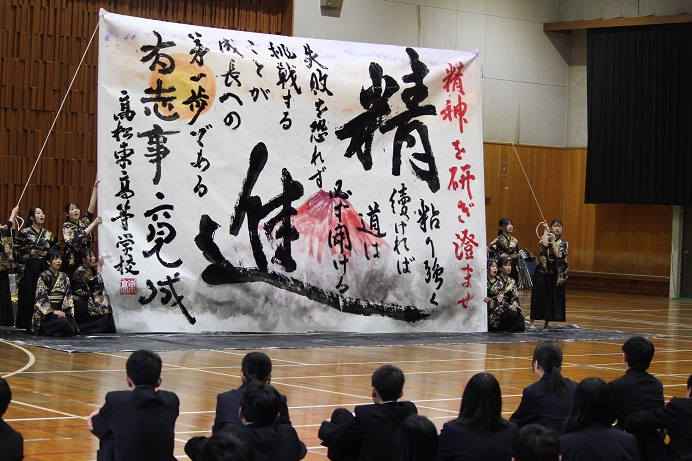 精神を研ぎ澄ませ
精進
粘り強く
続ければ
道は
必ず開ける
失敗を恐れず
挑戦する
ことが
成長への
第一歩である
有志事竟成
高松東高等学校